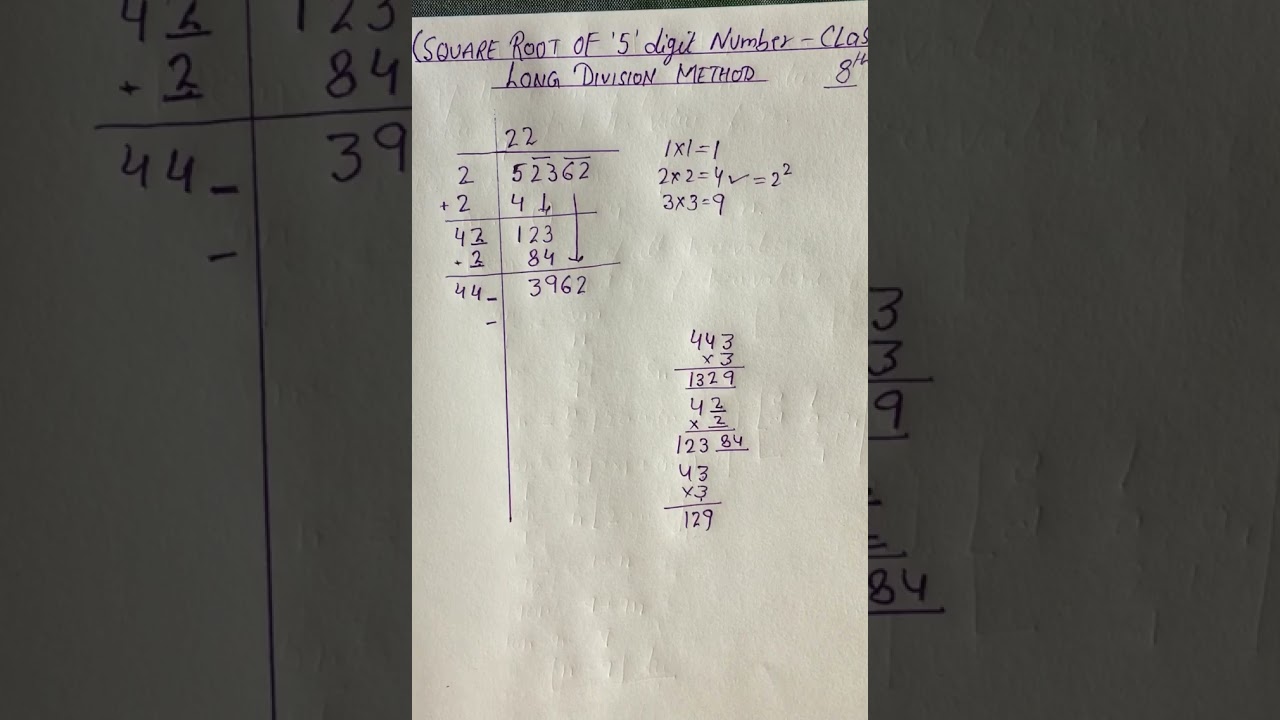 (SQUARE ROOT OF '5' digit Number - Clas
LONG DIVISION METHOD 8th
22
2 52362
+ 2 4
42 123
+ 2 84
44_ 3962
_
1x1=1
2x2=4✓=2²
3x3=9
443
x 3
1329
42
x 2
123 84
43
x3
129
42 123
+ 2 84
44_ 39
_
3
3
9
84